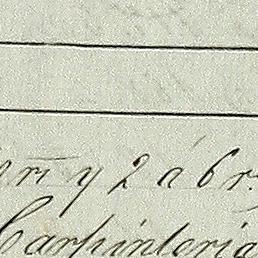 y 2 á 6 r.
Carpinteria